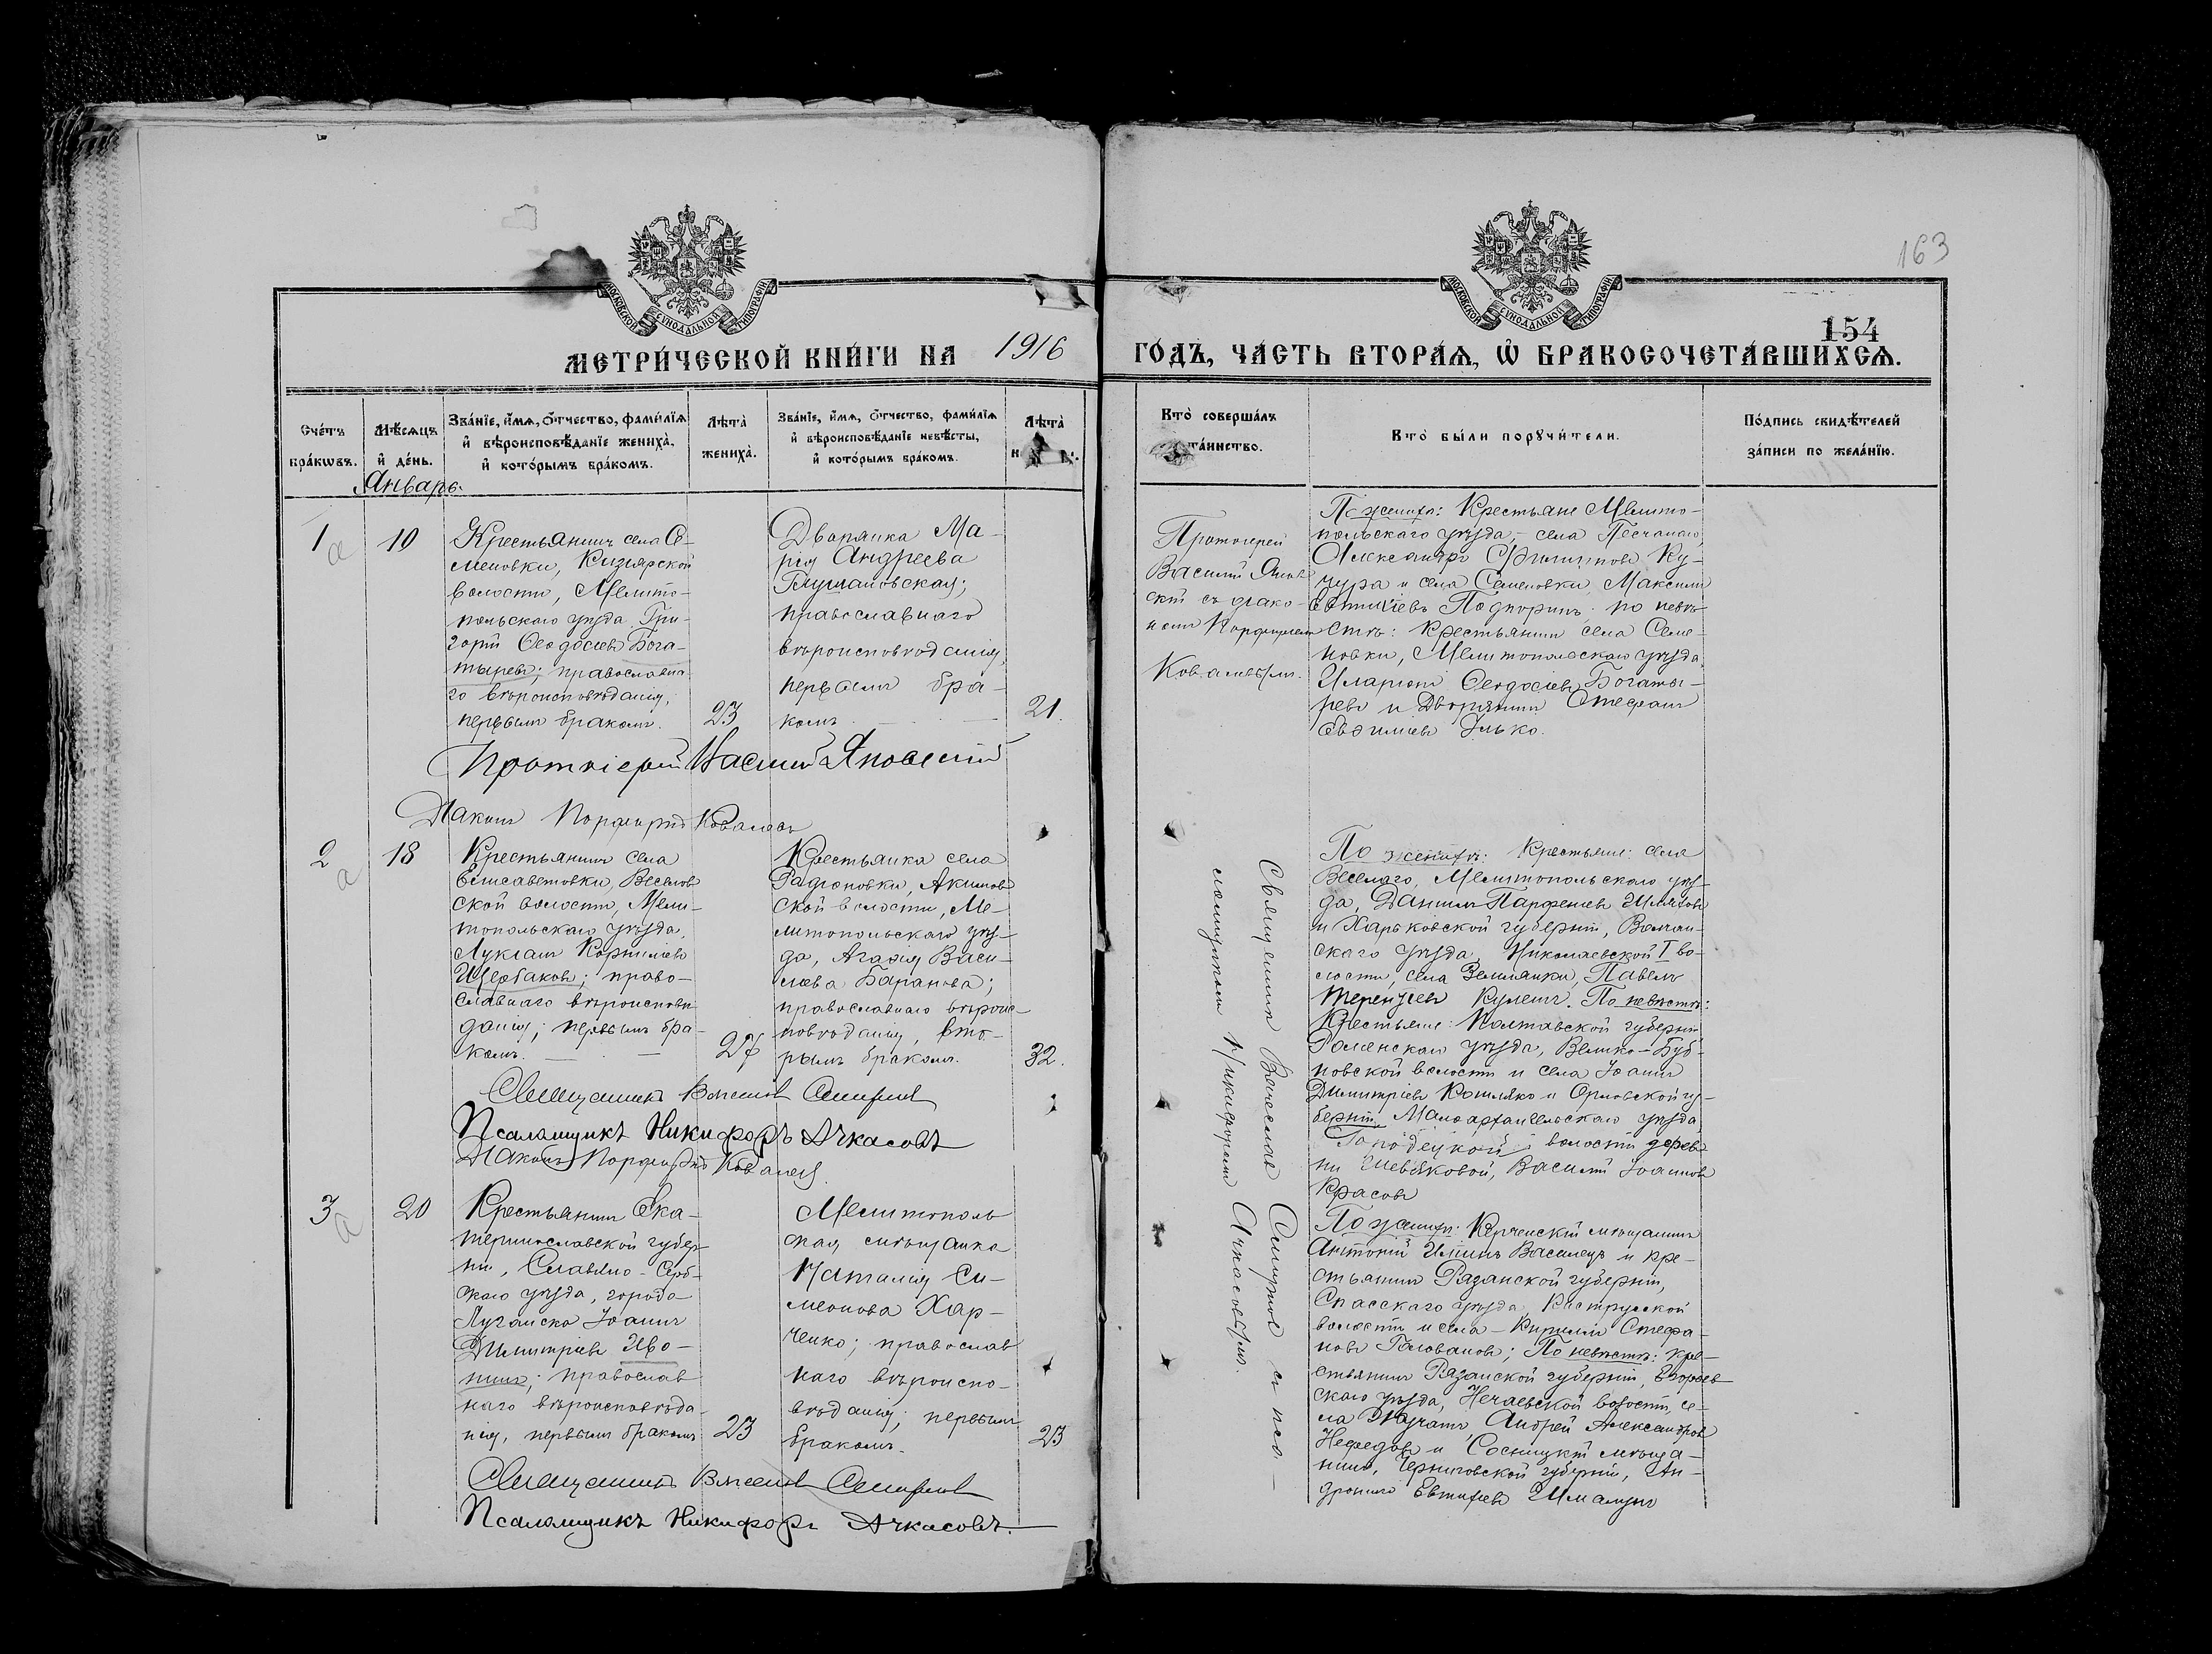 163
154
МОСКОВСКОЙ СѴНОДАЛЬНОЙ ТИПОГРАФІИ
МОСКОВСКОЙ СѴНОДАЛЬНОЙ ТИПОГРАФІИ
МЕТРИ́ЧЕСКОЙ КНИ́ГИ НА 1916 ГО́ДЪ, ЧА́СТЬ ВТОРА́Ѧ, Ѡ БРАКОСОЧЕТА́ВШИХСѦ.
Сче́тъ бра́кѡвъ.
Мѣ́сѧцъ и҆ де́нь.
Зва́нїе, и҆́мѧ, ѻ҆́тчество, фами́лїѧ
и҆ вѣроисповѣ́данїе жениха̀,
и҆ кото́рымъ бра́комъ.
Лѣта̀ жениха̀.
Зва́нїе, и҆́мѧ, ѻ҆́тчество, фами́лїѧ
и҆ вѣроисповѣ́данїе невѣ́сты,
и҆ кото́рымъ бра́комъ.
Лѣта̀
Кто̀ соверша́лъ
та́инство.
Кто̀ бы́ли порꙋчи́тели.
По́дпись свидѣ́телей
за́писи по жела́нїю.
Январь
1
а
10
Крестьянинъ села Се-
меновки, Кизіярской
волости, Мелито-
польскаго уѣзда, Гри-
горій Ѳеодосіевъ Бога-
тыревъ; православна-
го вѣроисповѣданія,
первымъ бракомъ.
23
Дворянка Ма-
рія Андреева
православнаго
вѣроисповѣданія,
первымъ бра-
комъ
21.
Протоіерей
Василій Янов-
скій съ діако-
номъ Порфиріемъ
Ковалевымъ.
По женихѣ: Крестьяне Мелито-
польскаго уѣзда, села Песчанаго,
Александръ Филипповъ Ку-
чура и села Семеновки, Максимъ
Подпоринъ; по невѣ-
стѣ: Крестьянинъ села Семе-
новки, Мелитопольскаго уѣзда,
Иларіонъ Ѳеодосіевъ Богаты-
ревъ и Дворянинъ Стефанъ
Евфиміевъ Улько.
Протоіерей Василій Яновскій
Діаконъ Порфирій Ковалевъ
2
а
18
Крестьянинъ села
Елисаветовки, Веселов-
ской волости, Мели-
топольскаго уѣзда,
Лукіанъ Корниліевъ
Щербаковъ; право-
славнаго вѣроисповѣ-
данія; первымъ бра-
комъ.
27
Крестьянка села
Радіоновки, Акимов-
ской волости, Ме-
литопольскаго уѣз-
да, Агафія Васи-
льева Баранова;
православнаго вѣроис-
повѣданія, вто-
рымъ бракомъ.
32.
Священникъ Вячеславъ Смирновъ съ пса-
ломщикомъ Никифоромъ Ачкасовымъ.
По женихѣ: Крестьяне: села
Веселаго, Мелитопольскаго уѣз-
да, Даніилъ Парфеніевъ
и Харьковской губерніи, Волчан-
скаго уѣзда, Николаевской I во-
лости, села Землянки, Павелъ
Терентіевъ Кулешъ. По невѣстѣ:
Крестьяне: Полтавской губерніи
Роменскаго уѣзда, Велико-Буб-
новской волости и села Іоаннъ
Димитріевъ и Орловской гу-
берніи, Малоархангельскаго уѣзда
волости дерев-
ни Шевяковой, Василій Іоанновъ
Красовъ
Священникъ Вячеславъ Смирновъ
Псаломщикъ Никифоръ Ачкасовъ
Діаконъ Порфирій Ковалевъ.
3
а
20
Крестьянинъ Ека-
теринославской губер-
ніи, Славяно-Серб-
скаго уѣзда, города
Луганска Іоаннъ
Димитріевъ Иво-
нинъ; православ-
наго вѣроисповѣда-
нія, первымъ бракомъ
23
Мелитополь-
ская мѣщанка
Наталія Си-
меонова Хар-
ченко; православ-
наго вѣроиспо-
вѣданія; первымъ
бракомъ.
23
По женихѣ: Керченскій мѣщанинъ
Антоній Василецъ и кре-
стьянинъ Рязанской губерніи,
Спасскаго уѣзда, Киструсской
волости и села - Кириллъ Стефа-
новъ Головановъ; По невѣстѣ: кре-
стьянинъ Рязанской губерніи, Егорьев-
скаго уѣзда, Нечаевской волости, се-
ла Андрей Александровъ
Нефедовъ и Сосницкій мѣща-
нинъ, Черниговской губерніи, Ан-
дроникъ Евтихіевъ
Священникъ Вячеславъ Смирновъ
Псаломщикъ Никифоръ Ачкасовъ.